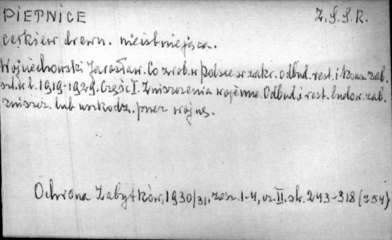 PIETNICE Z.S.R.R.
cerkiew drewn. nieistniejąca.
Wojciechowski Jarosław. Co zrob. w Polsce w zakr. odbud. rest. i kons. zab.
w l. 1919-1929. Część I. Zniszczenia wojenne. Odbud. i rest. budow. zab.
zniszcz. lub uszkodz. przez wojnę.
Ochrona Zabytków, 1930/31, zesz. 1-4, cz. II. str. 243-318 (254)